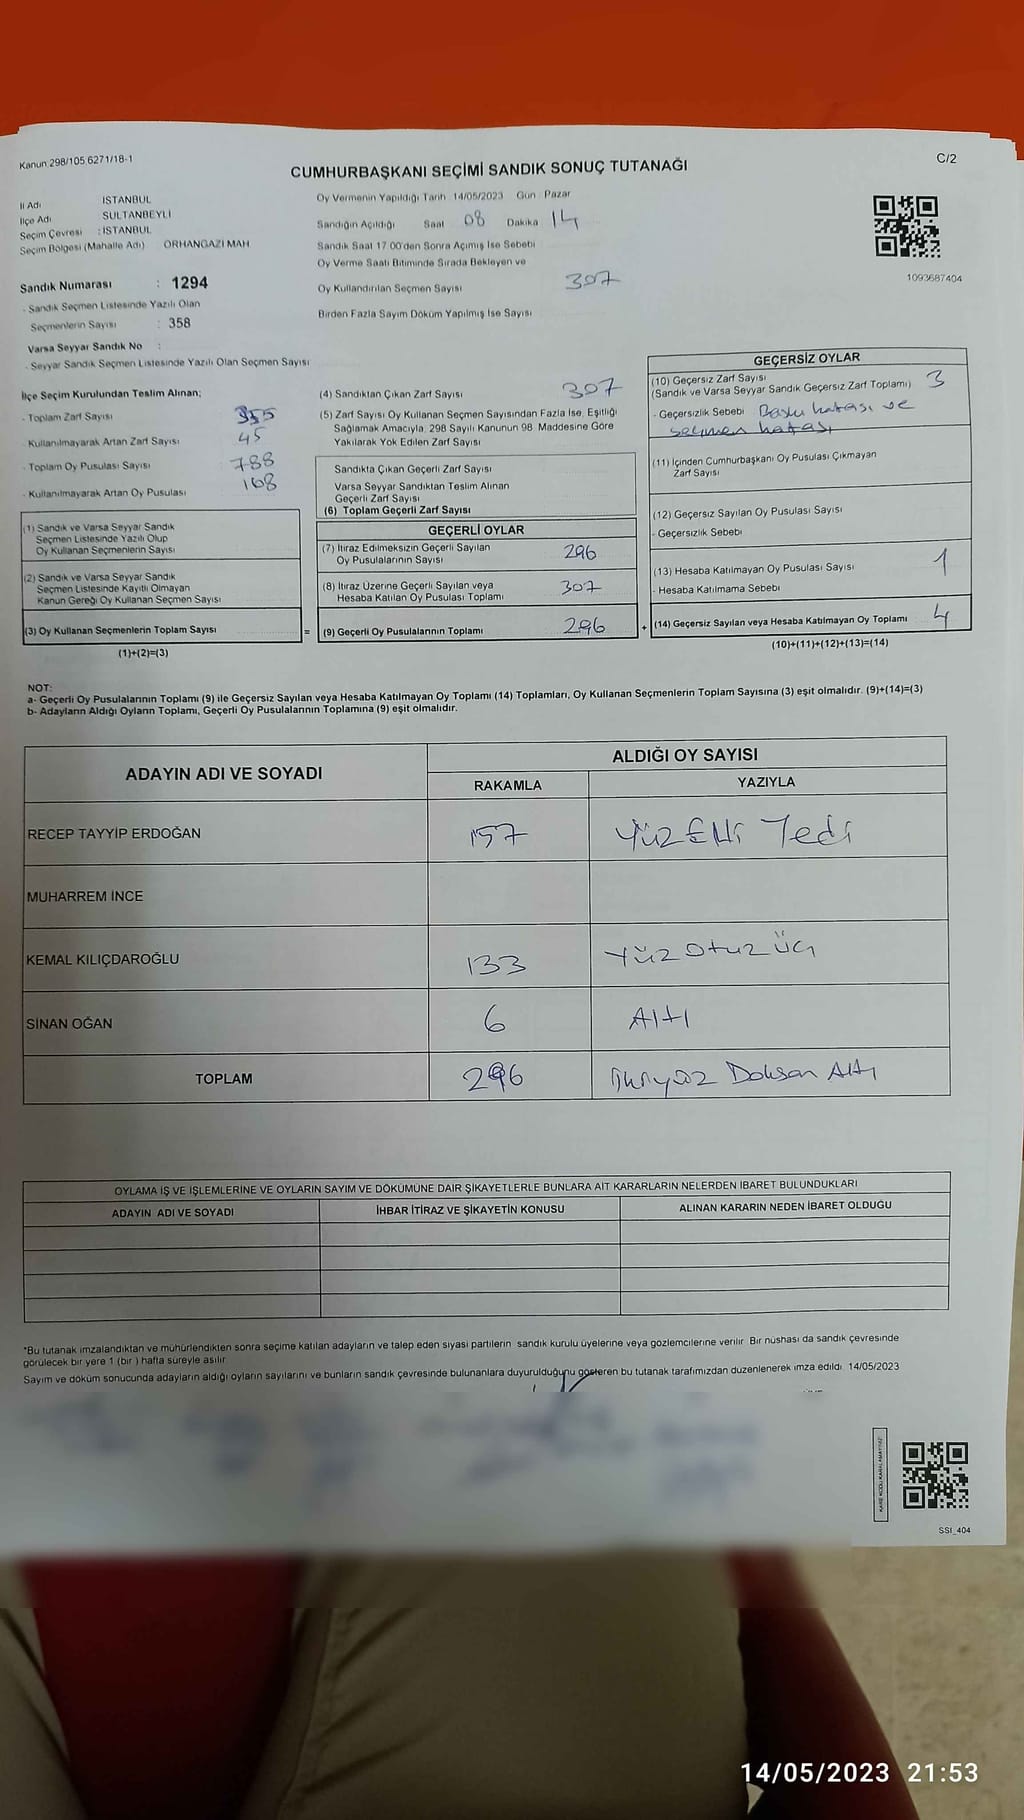 Kanun 298/105 6271/18-1
C/2
CUMHURBAŞKANI SEÇİMİ SANDIK SONUÇ TUTANAĞI
İl Adı İSTANBUL
İlçe Adı SULTANBEYLİ
Seçim Çevresi : İSTANBUL
Seçim Bölgesi (Mahalle Adı) ORHANGAZİ MAH
Sandık Numarası : 1294
- Sandık Seçmen Listesinde Yazılı Olan
Seçmenlerin Sayısı : 358
Varsa Seyyar Sandık No :
- Seyyar Sandık Seçmen Listesinde Yazılı Olan Seçmen Sayısı
Oy Vermenin Yapıldığı Tarih 14/05/2023 Gün Pazar
Sandığın Açıldığı Saat 08 Dakika 14
Sandık Saat 17 00'den Sonra Açımış İse Sebebi
Oy Verme Saati Bitiminde Sırada Bekleyen ve
Oy Kullandırılan Seçmen Sayısı 307
Birden Fazla Sayım Döküm Yapılmış İse Sayısı
1093687404
İlçe Seçim Kurulundan Teslim Alınan;
- Toplam Zarf Sayısı 355
- Kullanılmayarak Artan Zarf Sayısı 45
- Toplam Oy Pusulası Sayısı 788
- Kullanılmayarak Artan Oy Pusulası 168
(1) Sandık ve Varsa Seyyar Sandık
Seçmen Listesinde Yazılı Olup
Oy Kullanan Seçmenlerin Sayısı
(2) Sandık ve Varsa Seyyar Sandık
Seçmen Listesinde Kayıtlı Olmayan
Kanun Gereği Oy Kullanan Seçmen Sayısı
(3) Oy Kullanan Seçmenlerin Toplam Sayısı
(1)+(2)=(3)
=
(4) Sandıktan Çıkan Zarf Sayısı 307
(5) Zarf Sayısı Oy Kullanan Seçmen Sayısından Fazla İse, Eşitliği
Sağlamak Amacıyla, 298 Sayılı Kanunun 98 Maddesine Göre
Yakılarak Yok Edilen Zarf Sayısı
Sandıkta Çıkan Geçerli Zarf Sayısı
Varsa Seyyar Sandıktan Teslim Alınan
Geçerli Zarf Sayısı
(6) Toplam Geçerli Zarf Sayısı
GEÇERLİ OYLAR
(7) İtiraz Edilmeksizin Geçerli Sayılan
Oy Pusulalarının Sayısı 296
(8) İtiraz Üzerine Geçerli Sayılan veya
Hesaba Katılan Oy Pusulası Toplamı 307
(9) Geçerli Oy Pusulalarının Toplamı 296
+
GEÇERSİZ OYLAR
(10) Geçersiz Zarf Sayısı 3
(Sandık ve Varsa Seyyar Sandık Geçersiz Zarf Toplamı)
- Geçersizlik Sebebi Baskı hatası ve
seçmen hatası
(11) İçinden Cumhurbaşkanı Oy Pusulası Çıkmayan
Zarf Sayısı
(12) Geçersiz Sayılan Oy Pusulası Sayısı
- Geçersizlik Sebebi
(13) Hesaba Katılmayan Oy Pusulası Sayısı 1
- Hesaba Katılmama Sebebi
(14) Geçersiz Sayılan veya Hesaba Katılmayan Oy Toplamı 4
(10)+(11)+(12)+(13)=(14)
NOT:
a- Geçerli Oy Pusulalarının Toplamı (9) ile Geçersiz Sayılan veya Hesaba Katılmayan Oy Toplamı (14) Toplamları, Oy Kullanan Seçmenlerin Toplam Sayısına (3) eşit olmalıdır. (9)+(14)=(3)
b- Adayların Aldığı Oyların Toplamı, Geçerli Oy Pusulalarının Toplamına (9) eşit olmalıdır.
ADAYIN ADI VE SOYADI
ALDIĞI OY SAYISI
RAKAMLA YAZIYLA
RECEP TAYYİP ERDOĞAN 157 Yüz Elli Yedi
MUHARREM İNCE
KEMAL KILIÇDAROĞLU 133 Yüz Otuz Üç
SİNAN OĞAN 6 Altı
TOPLAM 296 İkiyüz Doksan Altı
OYLAMA İŞ VE İŞLEMLERİNE VE OYLARIN SAYIM VE DÖKÜMÜNE DAİR ŞİKAYETLERLE BUNLARA AİT KARARLARIN NELERDEN İBARET BULUNDUKLARI
ADAYIN ADI VE SOYADI İHBAR İTİRAZ VE ŞİKAYETİN KONUSU ALINAN KARARIN NEDEN İBARET OLDUĞU
*Bu tutanak imzalandıktan ve mühürlendikten sonra seçime katılan adayların ve talep eden siyasi partilerin sandık kurulu üyelerine veya gözlemcilerine verilir Bir nüshası da sandık çevresinde
görülecek bir yere 1 (bir ) hafta süreyle asılır
Sayım ve döküm sonucunda adayların aldığı oyların sayılarını ve bunların sandık çevresinde bulunanlara duyurulduğunu gösteren bu tutanak tarafımızdan düzenlenerek imza edildi. 14/05/2023
KARE KODU KARALAMAYINIZ
SSI_404
14/05/2023 21:53